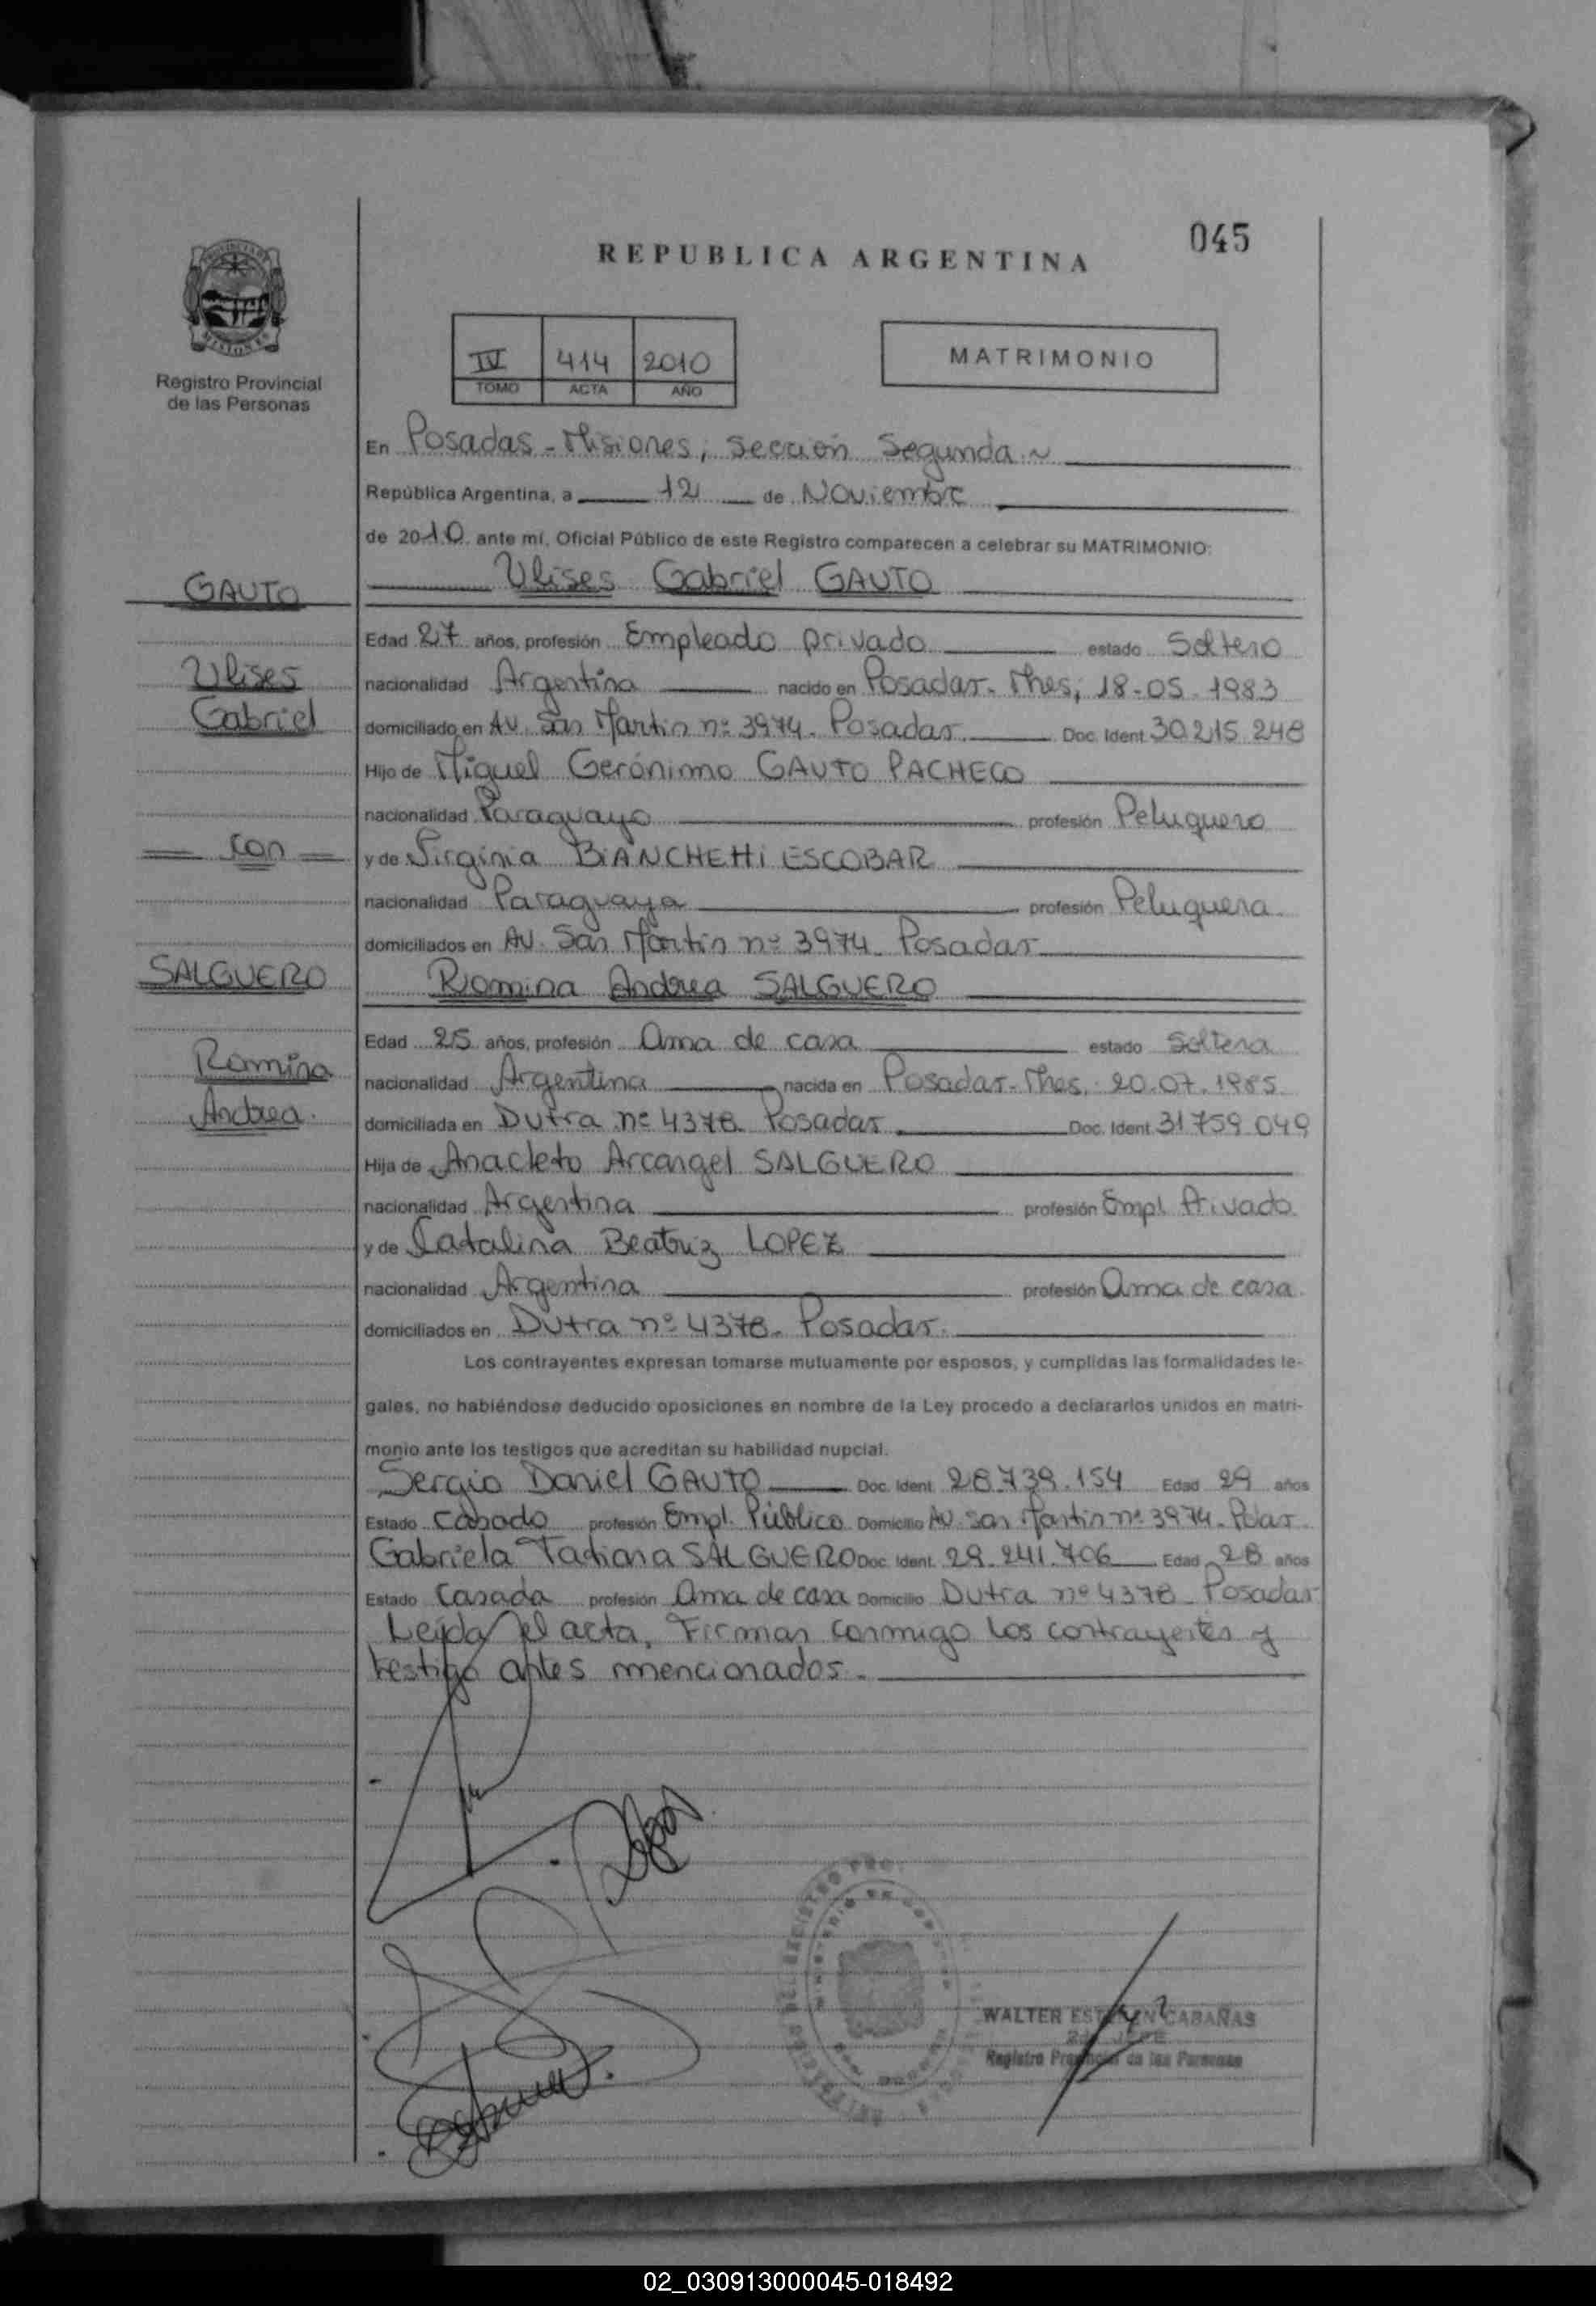 045
REPUBLICA ARGENTINA
PROVINCIA DE
MISIONES
Registro Provincial
de las Personas
IV 414 2010
TOMO ACTA AÑO
MATRIMONIO
En Posadas - Misiones, sección Segunda ~
República Argentina, a 12 de Noviembre
de 2010 ante mí, Oficial Público de este Registro comparecen a celebrar su MATRIMONIO:
Ulises Gabriel GAUTO
GAUTO
Edad 27 años, profesión Empleado privado estado Soltero
Ulises
nacionalidad Argentina nacido en Posadas - Mnes; 18-05-1983
Gabriel
domiciliado en AV. San Martin nº 3974. Posadas Doc. Ident. 30.215.248
Hijo de Miguel Gerónimo GAUTO PACHECO
nacionalidad Paraguayo profesión Peluquero
con
y de Virginia BiANCHETTi ESCOBAR
nacionalidad Paraguaya profesión Peluquera
domiciliados en AV. San Martin nº 3974. Posadas
SALGUERO
Romina Andrea SALGUERO
Edad 25 años, profesión Ama de casa estado Soltera
Romina
nacionalidad Argentina nacida en Posadas - Mnes, 20.07.1985
Andrea.
domiciliada en Dutra nº 4378. Posadas Doc. Ident. 31759049
Hija de Anacleto Arcangel SALGUERO
nacionalidad Argentina profesión Empl. Privado
y de Catalina Beatriz LOPEZ
nacionalidad Argentina profesión Ama de casa.
domiciliados en Dutra nº 4378. Posadas.
Los contrayentes expresan tomarse mutuamente por esposos, y cumplidas las formalidades le-
gales, no habiéndose deducido oposiciones en nombre de la Ley procedo a declararlos unidos en matri-
monio ante los testigos que acreditan su habilidad nupcial.
Sergio Daniel GAUTO Doc. Ident. 28.739.154 Edad 29 años
Estado Casado profesión Empl. Público Domicilio AV. San Martin nº 3974. Pdas.
Gabriela Tatiana SALGUERO Doc. Ident. 29.241.706 Edad 28 años
Estado Casada profesión Ama de casa Domicilio Dutra nº 4378 - Posadas
Leída el acta, Firman conmigo los contrayentes y
testigo antes mencionados.
WALTER ESTEBAN CABAÑAS
JEFE
Registro Provincial de las Personas
02_030913000045-018492